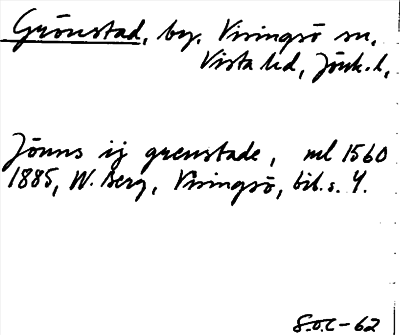 Grönstad, by, Visingsö sn,
Vista hd, Jönk. l,
Jönns ij grenstade, ml 1560
1885, W. Berg, Visingsö, bil. s. 4.
S.Ö.C-62